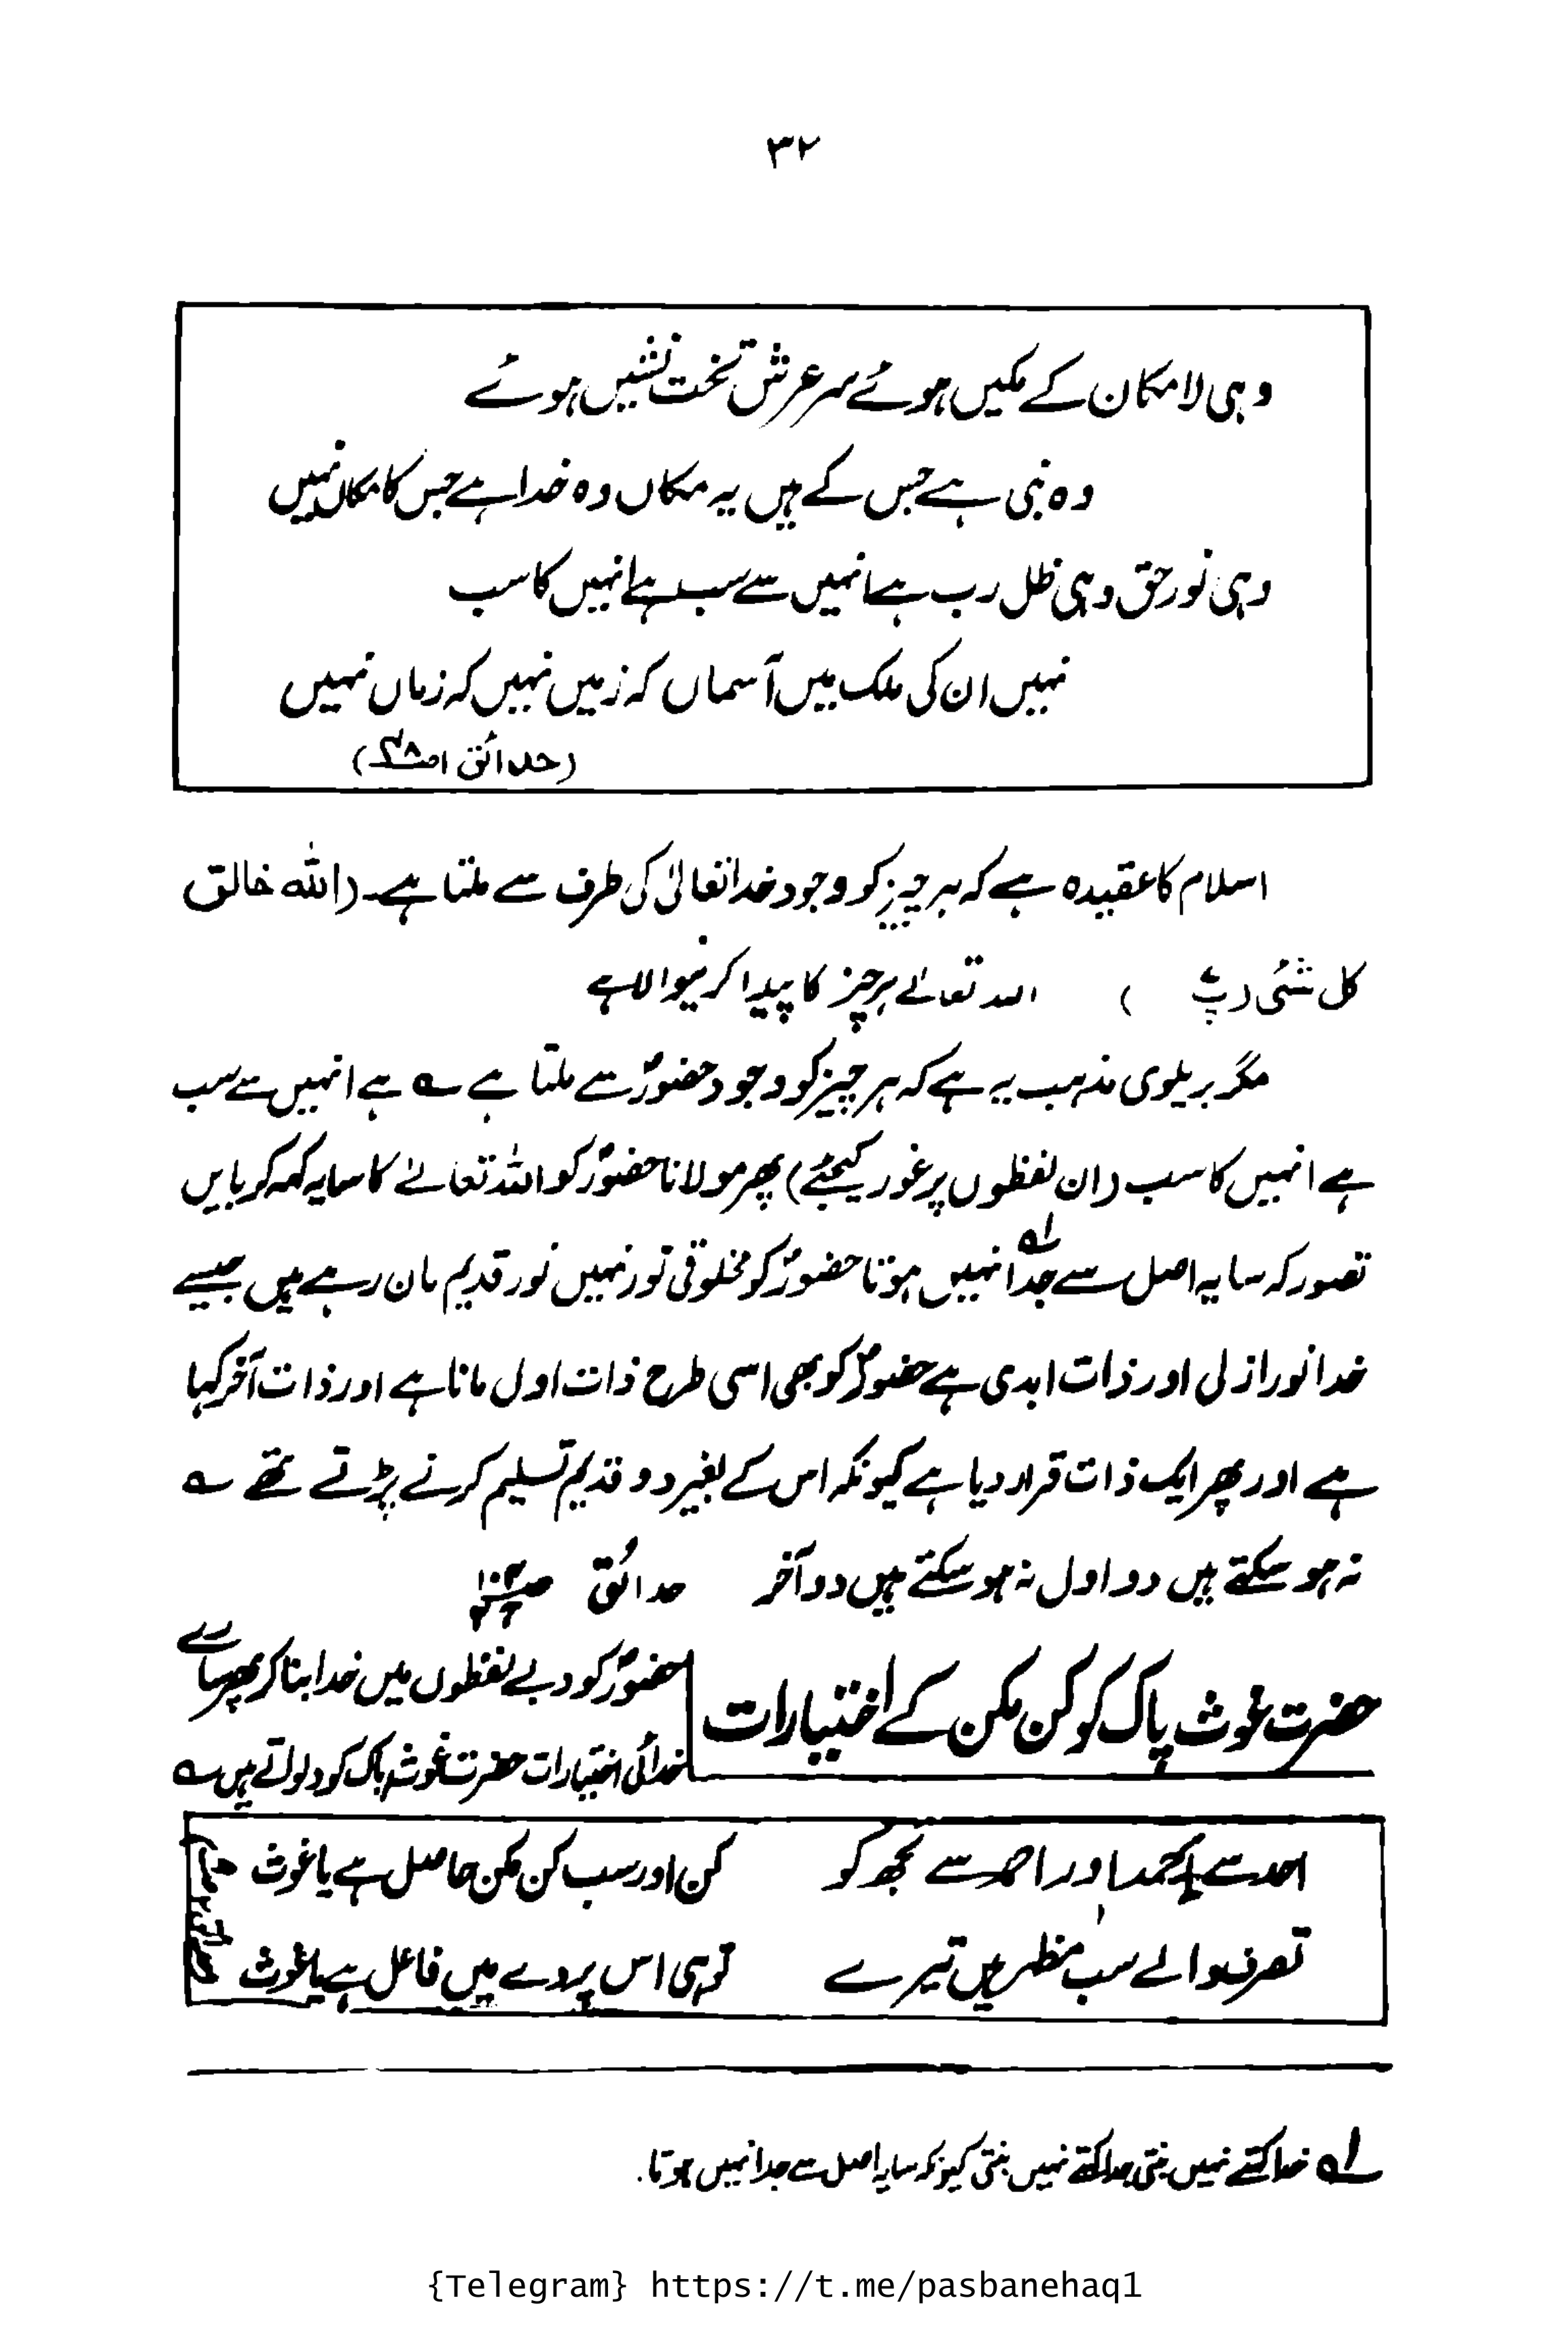 ۳۲
وہی لامکان کے مکیں ہوئے سر عرش تخت نشیں ہوئے
وہ نبی ہے جس کے ہیں یہ مکاں وہ خدا ہے جس کا مکاں نہیں
وہی نور حق وہی ظل رب ہے انہیں سے سب ہے انہیں کا سب
نہیں ان کی ملک میں آسماں کہ زمیں نہیں کہ زماں نہیں
(حدائق ا ص۴۸)
اسلام کا عقیدہ ہے کہ ہر چیز کو وجود خدا تعالیٰ کی طرف سے ملتا ہے۔ (اللہ خالق
کل شئی (پ ) اللہ تعالےٰ ہر چیز کا پیدا کرنیوالا ہے
مگر بریلوی مذہب یہ ہے کہ ہر چیز کو وجود حضورؐ سے ملتا ہے ؎ ہے انہیں سے سب
ہے انہیں کا سب (ان لفظوں پر غور کیجئے) پھر مولانا حضورؐ کو اللہ تعالےٰ کا سایہ کہہ کر بایں
تصور کہ سایہ اصل سے جدا نہیں ہوتا لہ حضورؐ کو مخلوقی نور نہیں نور قدیم مان رہے ہیں جیسے
خدا نور ازلی اور ذات ابدی ہے حضورؐ کو بھی اسی طرح ذات اول مانا ہے اور ذات آخر کہا
ہے اور پھر ایک ذات قرار دیا ہے کیونکہ اس کے بغیر دو قدیم تسلیم کرنے پڑتے تھے ؎
نہ ہو سکتے ہیں دو اول نہ ہو سکتے ہیں دو آخر حدائق
حضرت غوث پاک کو کن مکن کے اختیارات
حضورؐ کو دبے لفظوں میں خدا بنا کر پھر سارے
خدائی اختیارات حضرت غوث پاک کو دلواتے ہیں ؎
احد سے احمد اور احمد سے تجھ کو کن اور سب کن مکن حاصل ہے یا غوث
تصرف والے سب مظہر ہیں تیرے تو ہی اس پردے میں فاعل ہے یا غوث
لہ خدا کہتے نہیں بنتی جدا کہتے نہیں بنتی کیونکہ سایہ اصل سے جدا نہیں ہوتا.
{Telegram} https://t.me/pasbanehaq1